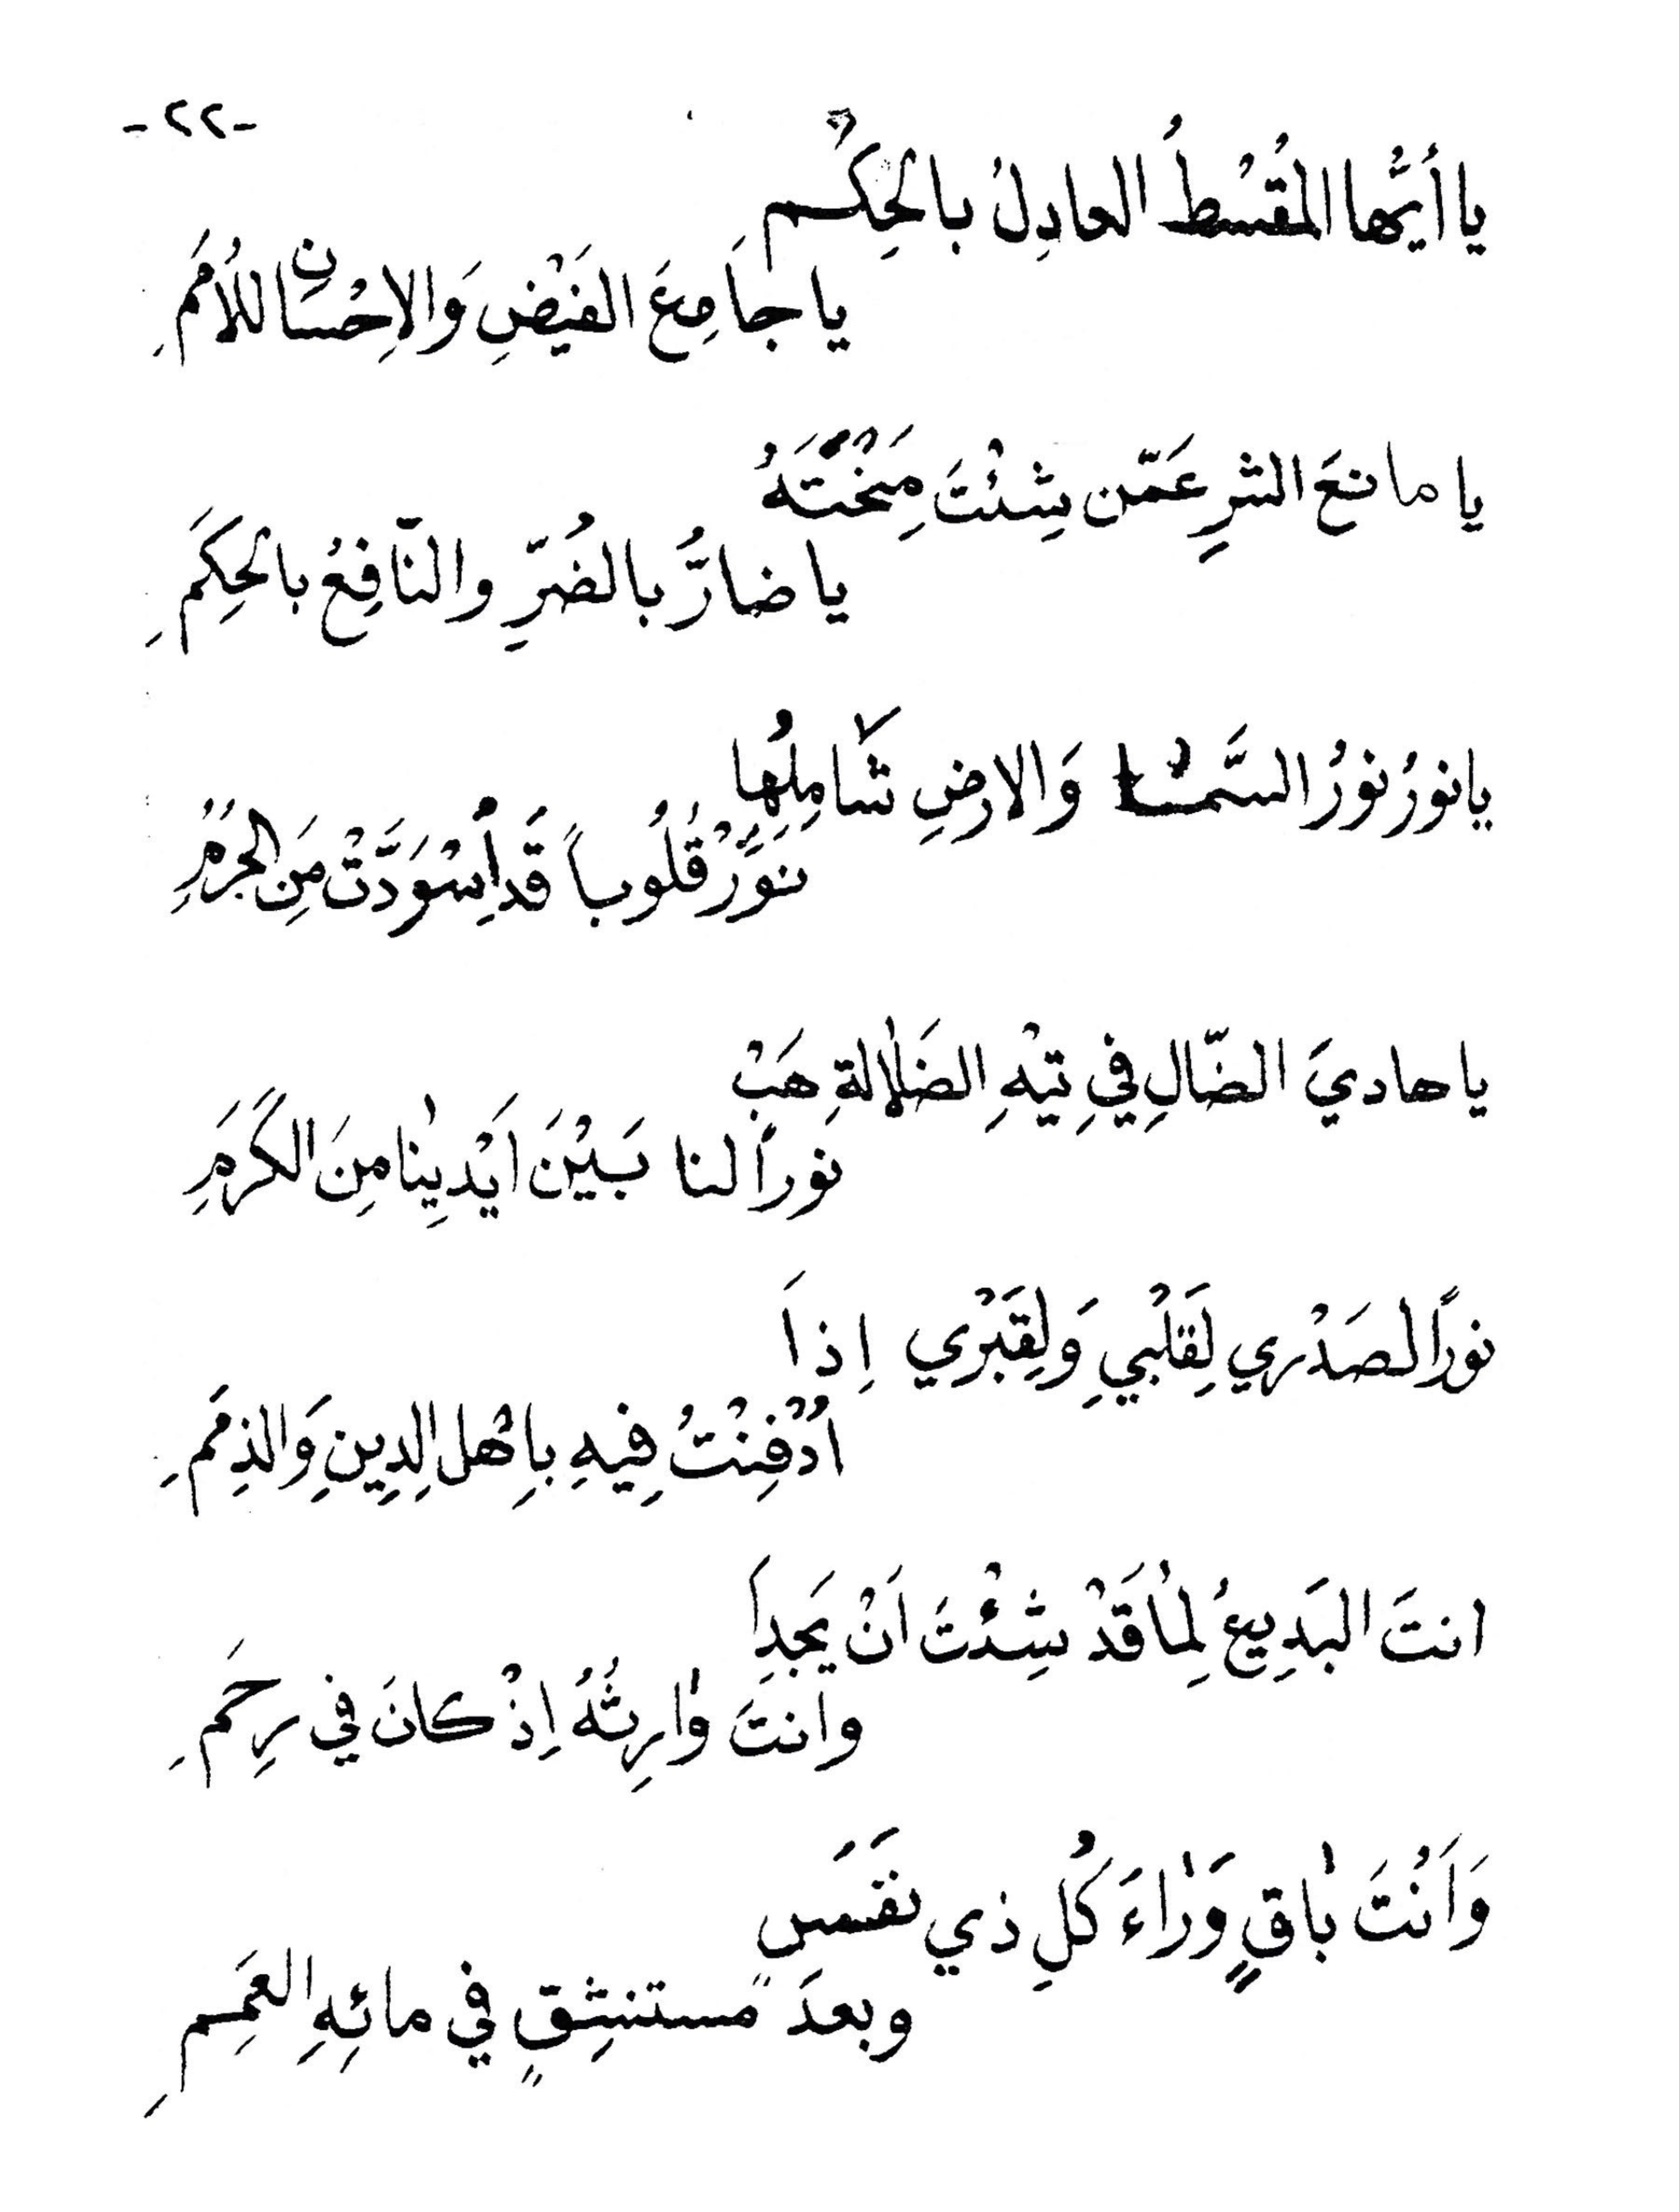 -٢٢-
يا أيُّها المُقْسْطُ العادِلُ بالحِكْم
يا جاَمِعَ الفَيْضِ وَالاِحْسَانِ للأُمَمِ
يا مانعَ الشرِ عَمّن شِئْتَ مِنْحْتَهُ
يا ضارُّ بالضُرِّ والنّافِعُ بالحِكَمِ
يانورُ نورُ السَّمٰا وَالارضِ شَامِلِهُا
نَوِّرْ قُلُوباً قَد أِسْوَدَّتْ مَنِ الجُرُمِ
يا هاديَ الضّالِ فيِ تيْهِ الضَلٰالةِ هَبْ
نوراً لنا بَيْنَ اَيْدِيْنٰا مِنَ الكَرَمِ
نوراً لصَدْري لِقَلْبيِ وَلِقَبْري اِذاَ
اُدْفِنْتُ فِيهِ بِاهْلِ الدِينِ وَالذِمَمِ
انتَ البَدِيعُ لِمٰا قَدْ شِئْتَ اَنْ يَجِدا
وانتَ وٰارِثُهُ اِذْ كانَ في رِحَمِ
وَاَنْتَ بٰاقٍ وَرٰاءَ كُلِ ذي نفَسٍ
وبعدَ مستنشِقٍ في مائِهِ العَمِمِ